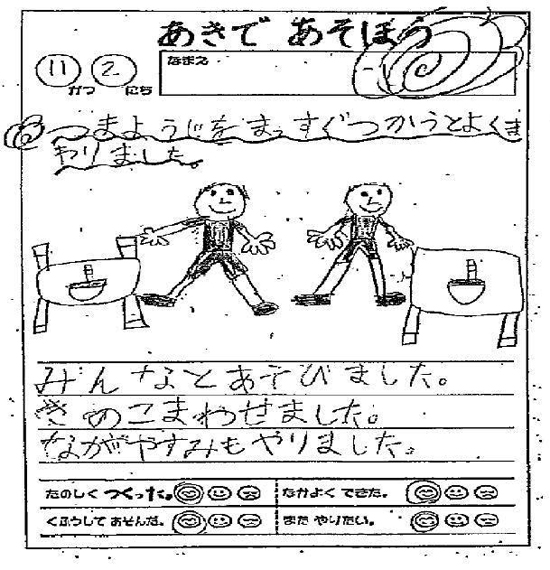 あきで あそぼう
11 がつ 2 にち なまえ
つまようじをまっすぐつかうとよくま
わりました。
みんなとあそびました。
きのこまわせました。
ながやすみもやりました。
たのしく つくった。 なかよく できた。
くふうして あそんだ。 また やりたい。